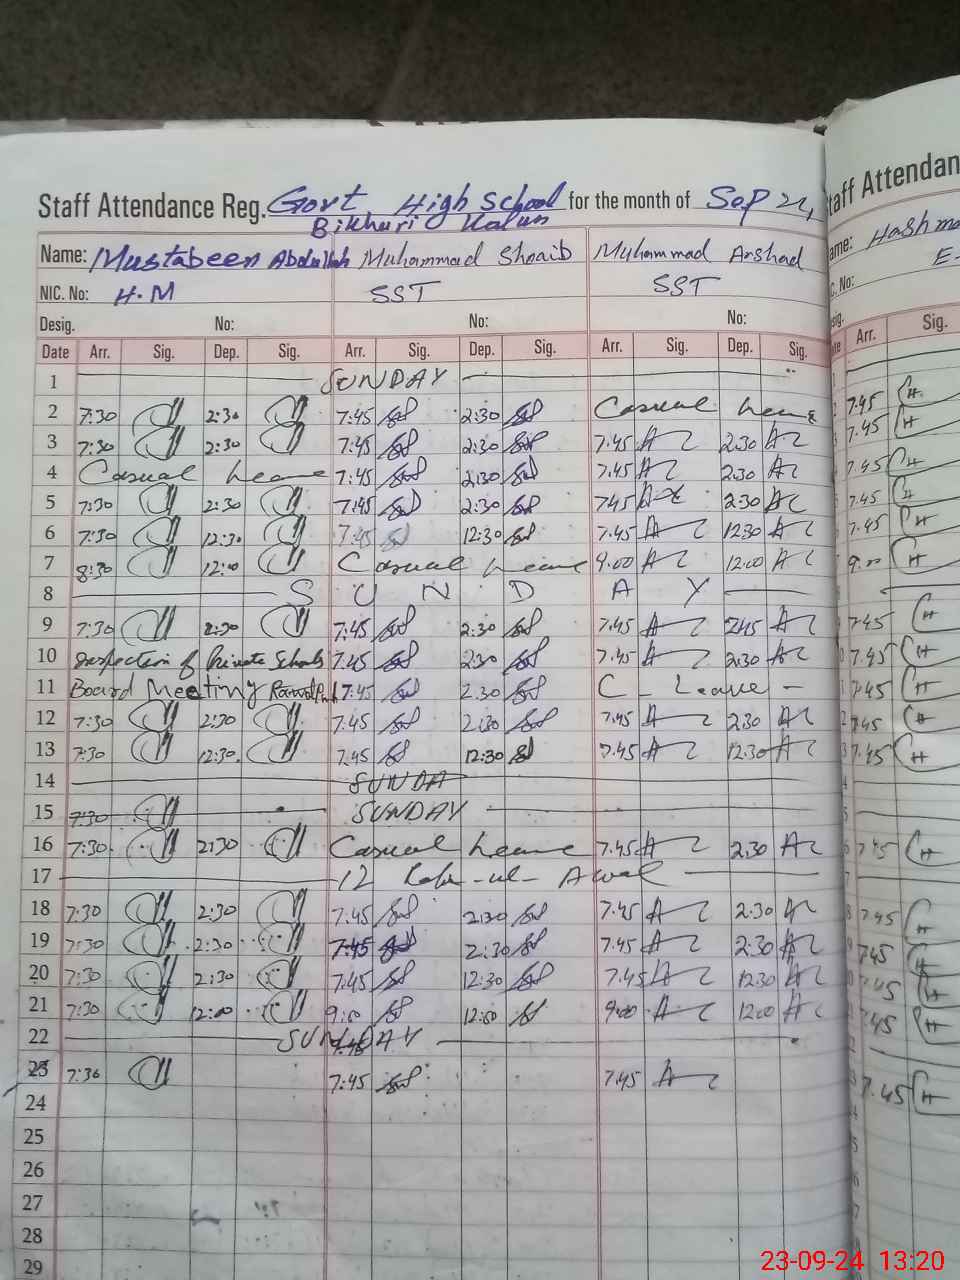 Staff Attendance Reg. Govt High School for the month of Sep 24,
Bikhari Kalan
Name: Mustabeen Abdullah Muhammad Shoaib Muhammad Arshad
NIC. No: H.M SST SST
Desig. No: No: No:
Date Arr. Sig. Dep. Sig. Arr. Sig. Dep. Sig. Arr. Sig. Dep. Sig.
1 SUNDAY
2 7:30 2:30 7:45 2:30 Casual Leave
3 7:30 2:30 7:45 2:30 7.45 2.30
4 Casual Leave 7:45 2:30 7.45 2.30
5 7:30 2:30 7:45 2:30 7.45 2:30
6 7:30 12:30 7:45 12:30 7.45 12.30
7 8:30 12:00 Casual Leave 9.00 12.00
8 S U N D A Y
9 7:30 2:30 7:45 2:30 7.45 2.45
10 Inspection of Private Schools 7:45 2:30 7.45 2.30
11 Board Meeting 7:45 2:30 C - Leave -
12 7:30 2:30 7:45 2:30 7.45 2.30
13 7:30 12:30 7:45 12:30 7.45 12.30
14 SUNDA
15 7:30 SUNDAY
16 7:30 2:30 Casual Leave 7.45 2.30
17 12 Rabi-ul-Awal
18 7:30 2:30 7:45 2:30 7.45 2.30
19 7:30 2:30 7:45 2:30 7.45 2.30
20 7:30 2:30 7:45 12:30 7.45 12.30
21 7:30 12:00 9:00 12:00 9.00 12.00
22 SUNDAY
23 7:30 7:45 7.45
24
25
26
27
28
29
taff Attendan
ame: Hashma
E-
C. No:
esig.
Arr. Sig.
7.45
7.45
7.45
7.45
7.45
9.00
7.45
7.45
7.45
7.45
7.45
7.45
7.45
7.45
7.45
7.45
7.45
23-09-24 13:20